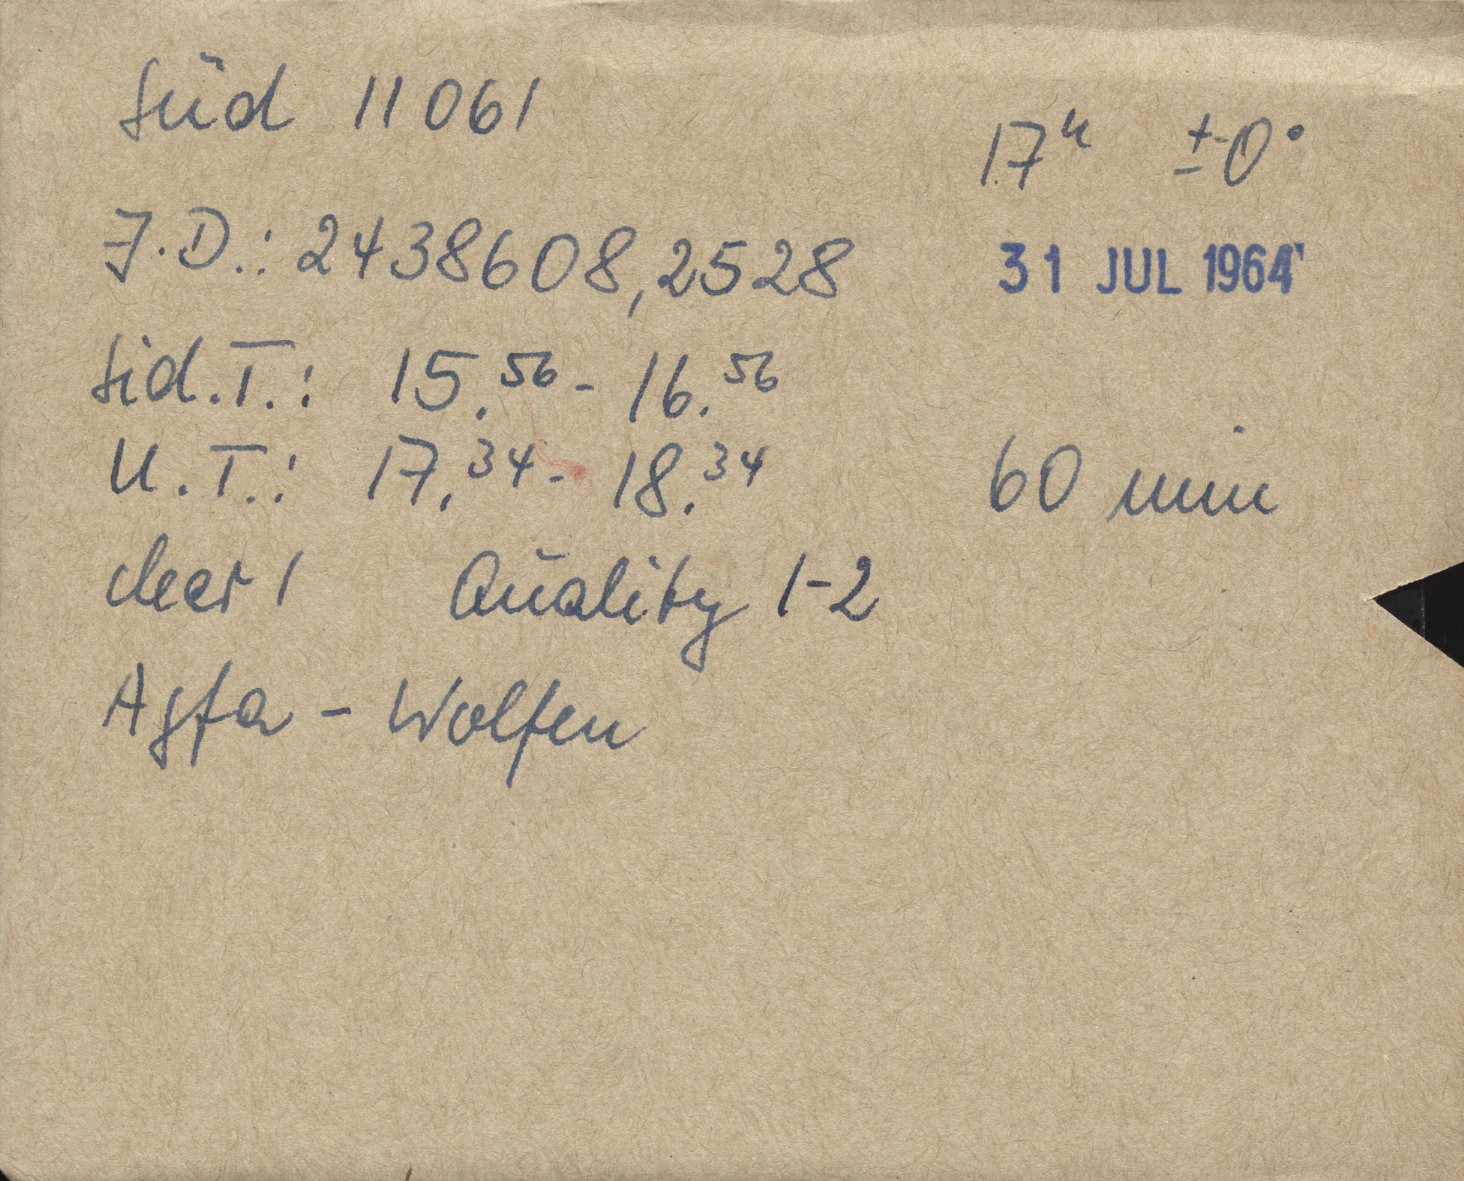 Süd 11061
17ʰ ±0°
J.D.: 2438608,2528
31 JUL 1964
Sid.T.: 15.⁵⁶ - 16.⁵⁶
U.T.: 17.³⁴ - 18.³⁴ 60 min
clear 1 Quality 1-2
Agfa - Wolfen